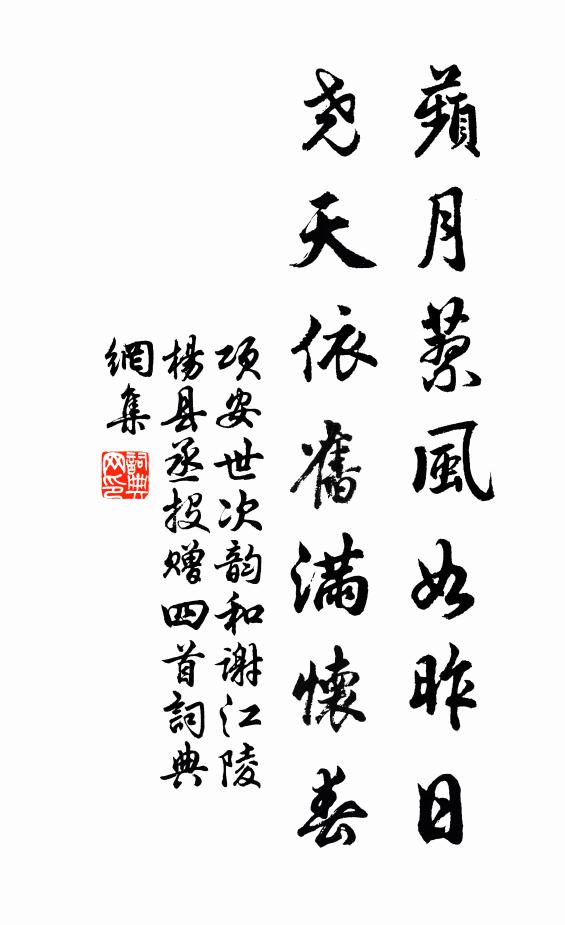 蘋月蔡風如昨日
尧天依舊滿懷春
项安世次韵和谢江陵
楊县丞投赠四首詞典
網集
詞典网印